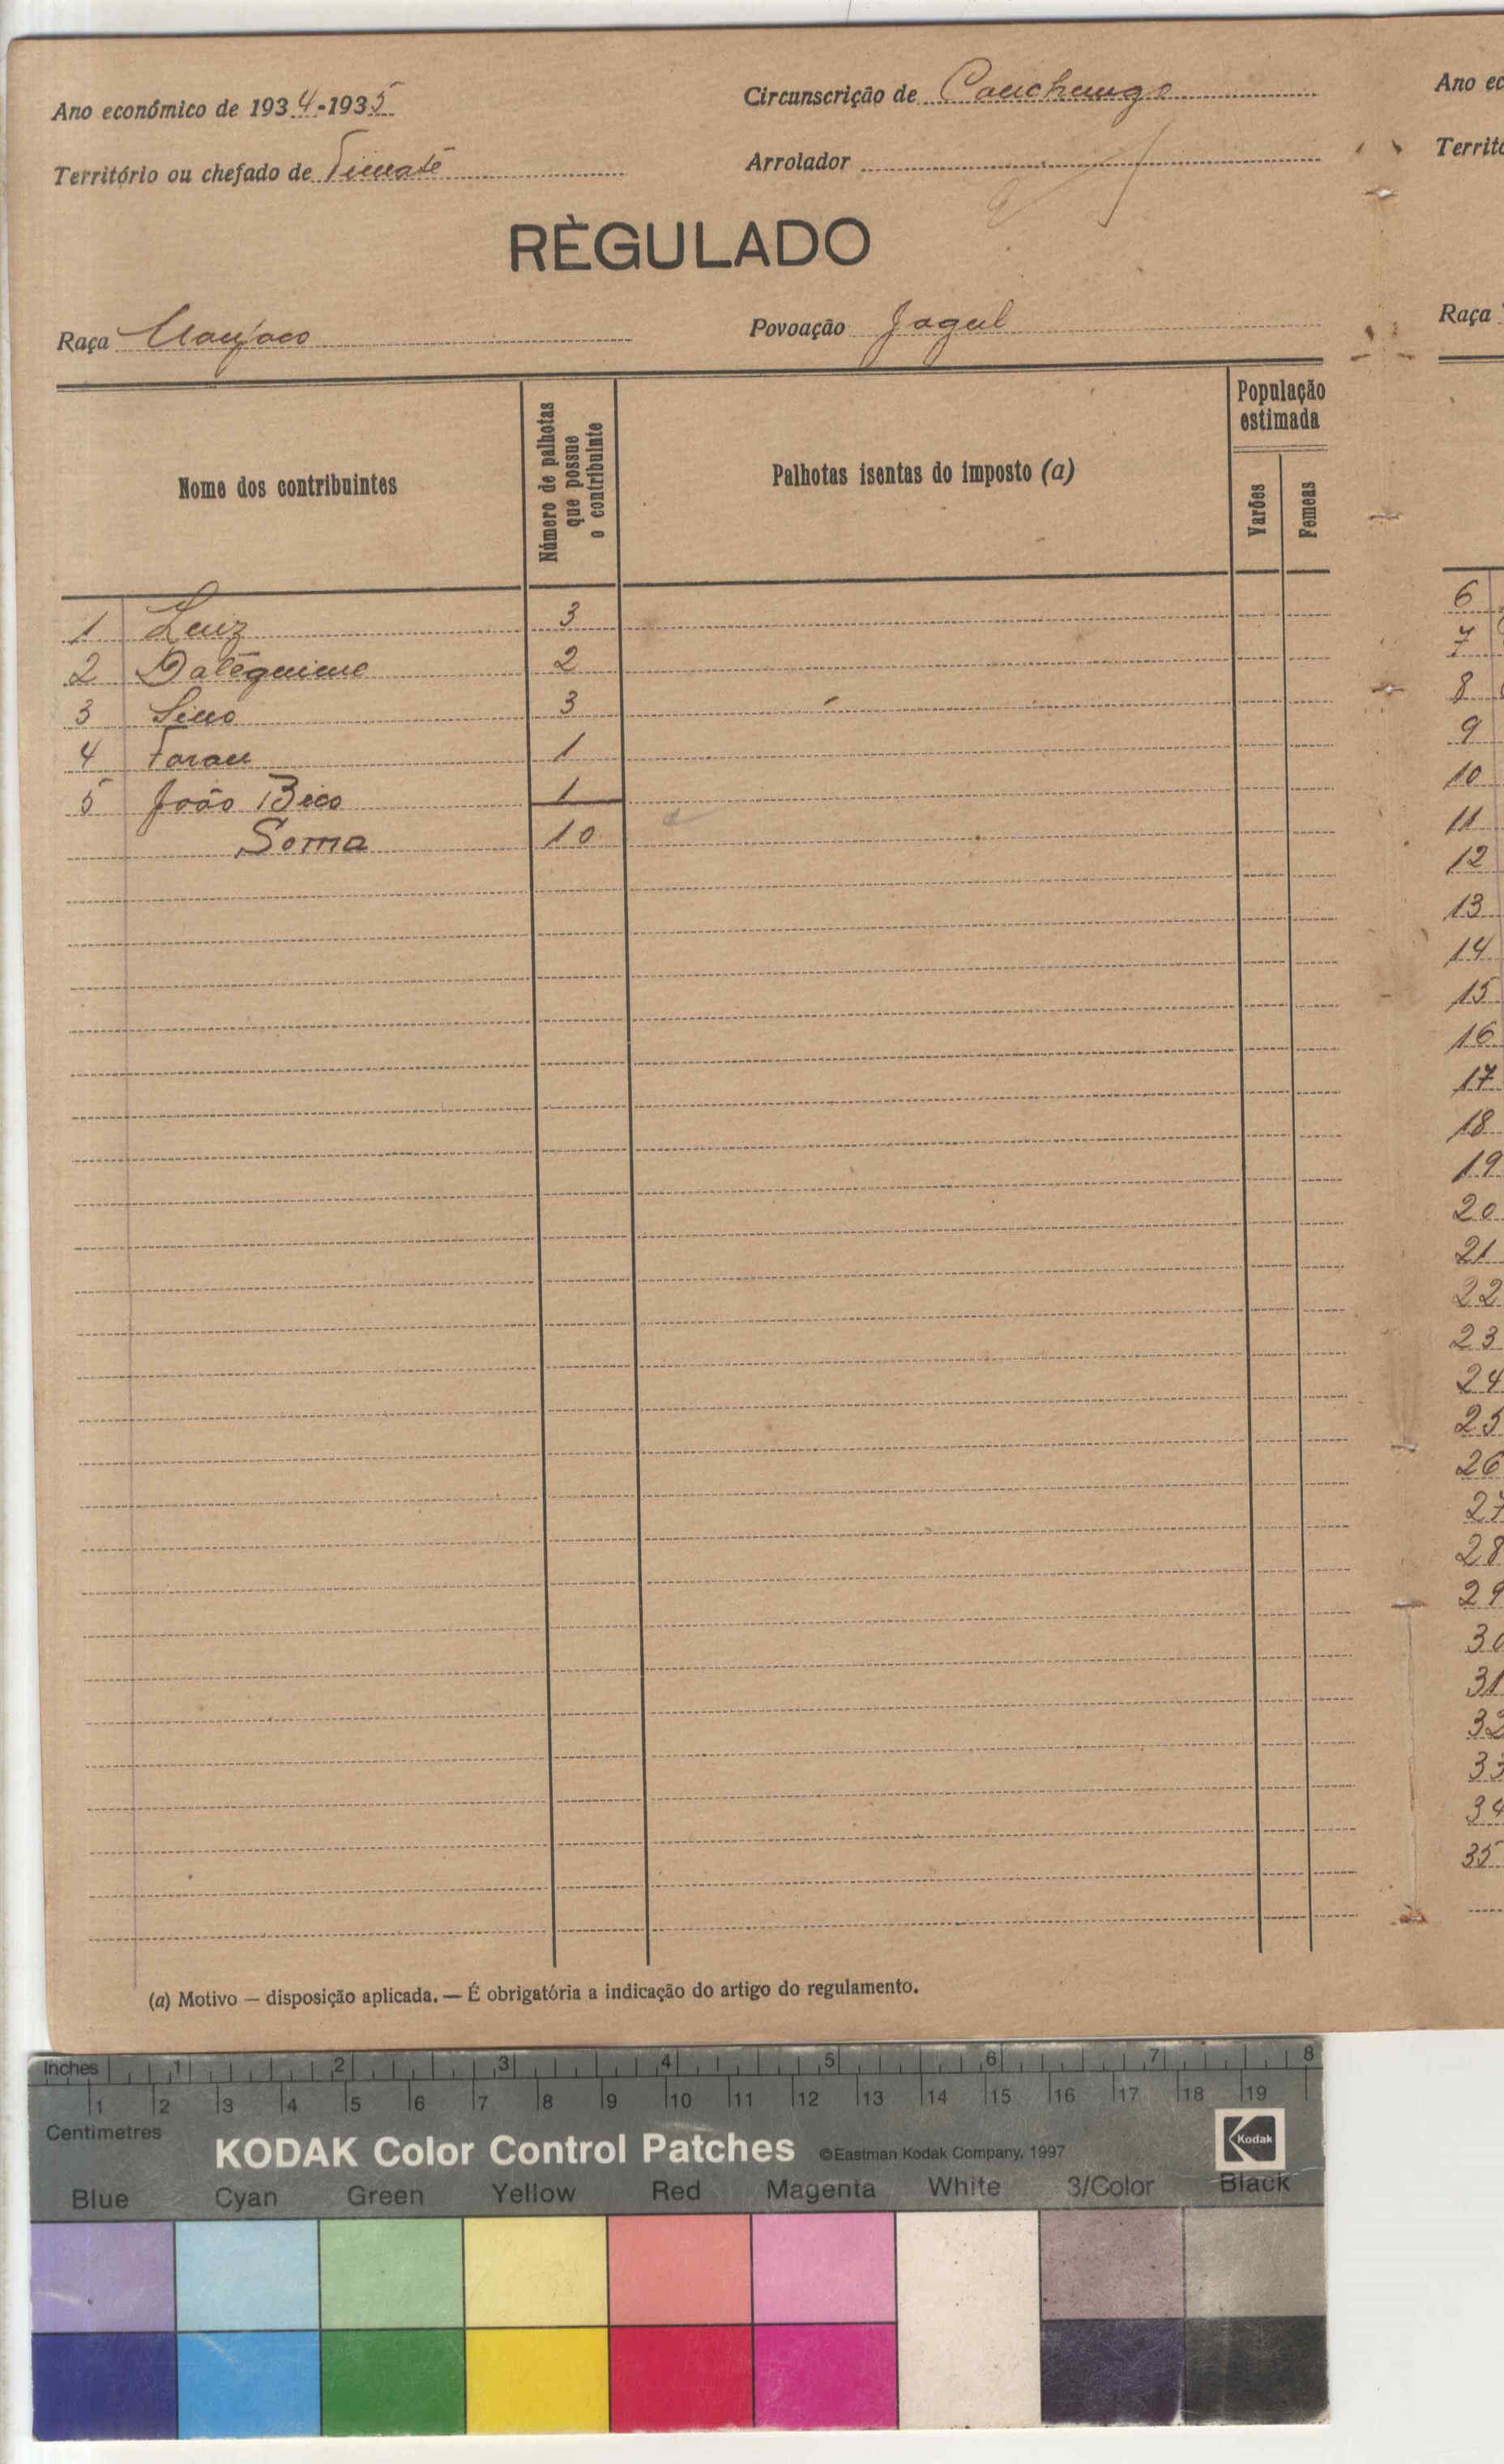 Ano económico de 1934-1935
Circunscrição de Canchungo
Território ou chefado de Timaté
Arrolador
RÈGULADO
Raça Manjaco
Povoação Jagul
Nome dos contribuintes
Número de palhotas que possue o contribuinte
Palhotas isentas do imposto (a)
População estimada
Varões
Femeas
1 Luiz 3
2 Datéquime 2
3 Sino 3
4 Faran 1
5 João Bico 1
Soma 10
(a) Motivo — disposição aplicada. — É obrigatória a indicação do artigo do regulamento.
Ano ec
Territó
Raça
6
7
8
9
10
11
12
13
14
15
16
17
18
19
20
21
22
23
24
25
26
27
28
29
30
31
32
33
34
35
Inches 1 2 3 4 5 6 7 8
1 2 3 4 5 6 7 8 9 10 11 12 13 14 15 16 17 18 19
Centimetres
KODAK Color Control Patches ©Eastman Kodak Company, 1997 Kodak
Blue Cyan Green Yellow Red Magenta White 3/Color Black